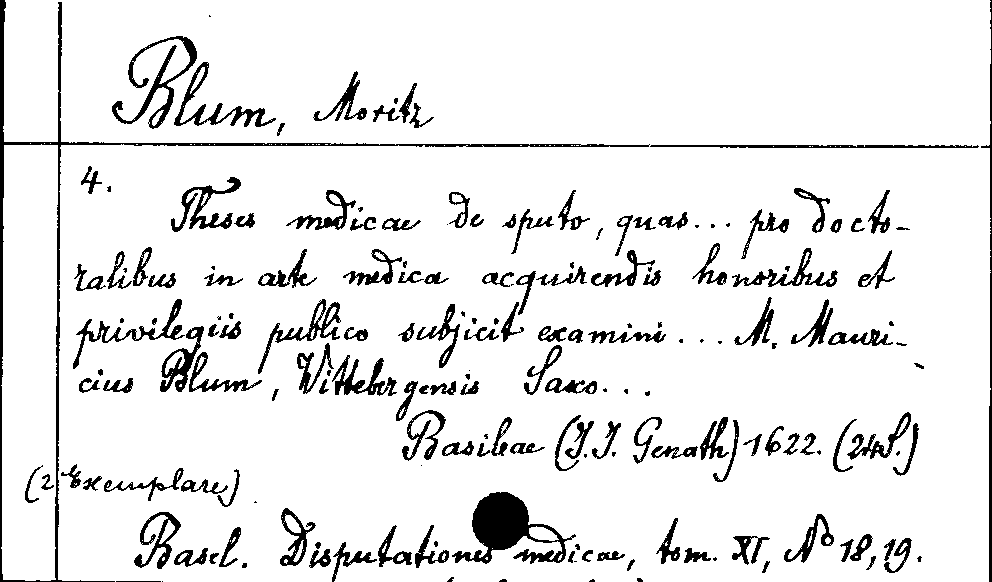 Blum, Moritz
4.
Theses medicae de sputo, quas... pro docto-
ralibus in arte medica acquirendis honoribus et
privilegiis publico subjicit examini ... M. Mauri-
cius Blum, Wittebergensis Saxo...
Basileae (J.J. Genath) 1622. (24S.)
(2 Exemplare)
Basel. Disputationes medicae, tom. XI, No 18, 19.